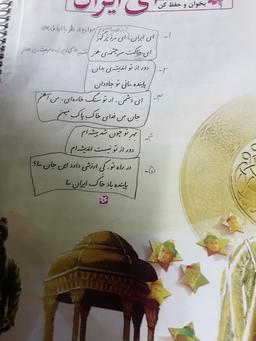 بخوان و حفظ کن
ای ایران
۱- ای ایران، ای مرز پر گهر
ای خاکت سرچشمه‌ی هنر
۲- دور از تو اندیشه‌ی بدان
پاینده مانی تو جاودان
۳- ای دشمن ار تو سنگ خاره‌ای، من آهنم
جان من فدای خاک پاک میهنم
۴- مهر تو چون شد پیشه‌ام
دور از تو نیست اندیشه‌ام
۵- در راه تو، کی ارزشی دارد این جان ما؟
پاینده باد خاک ایران ما